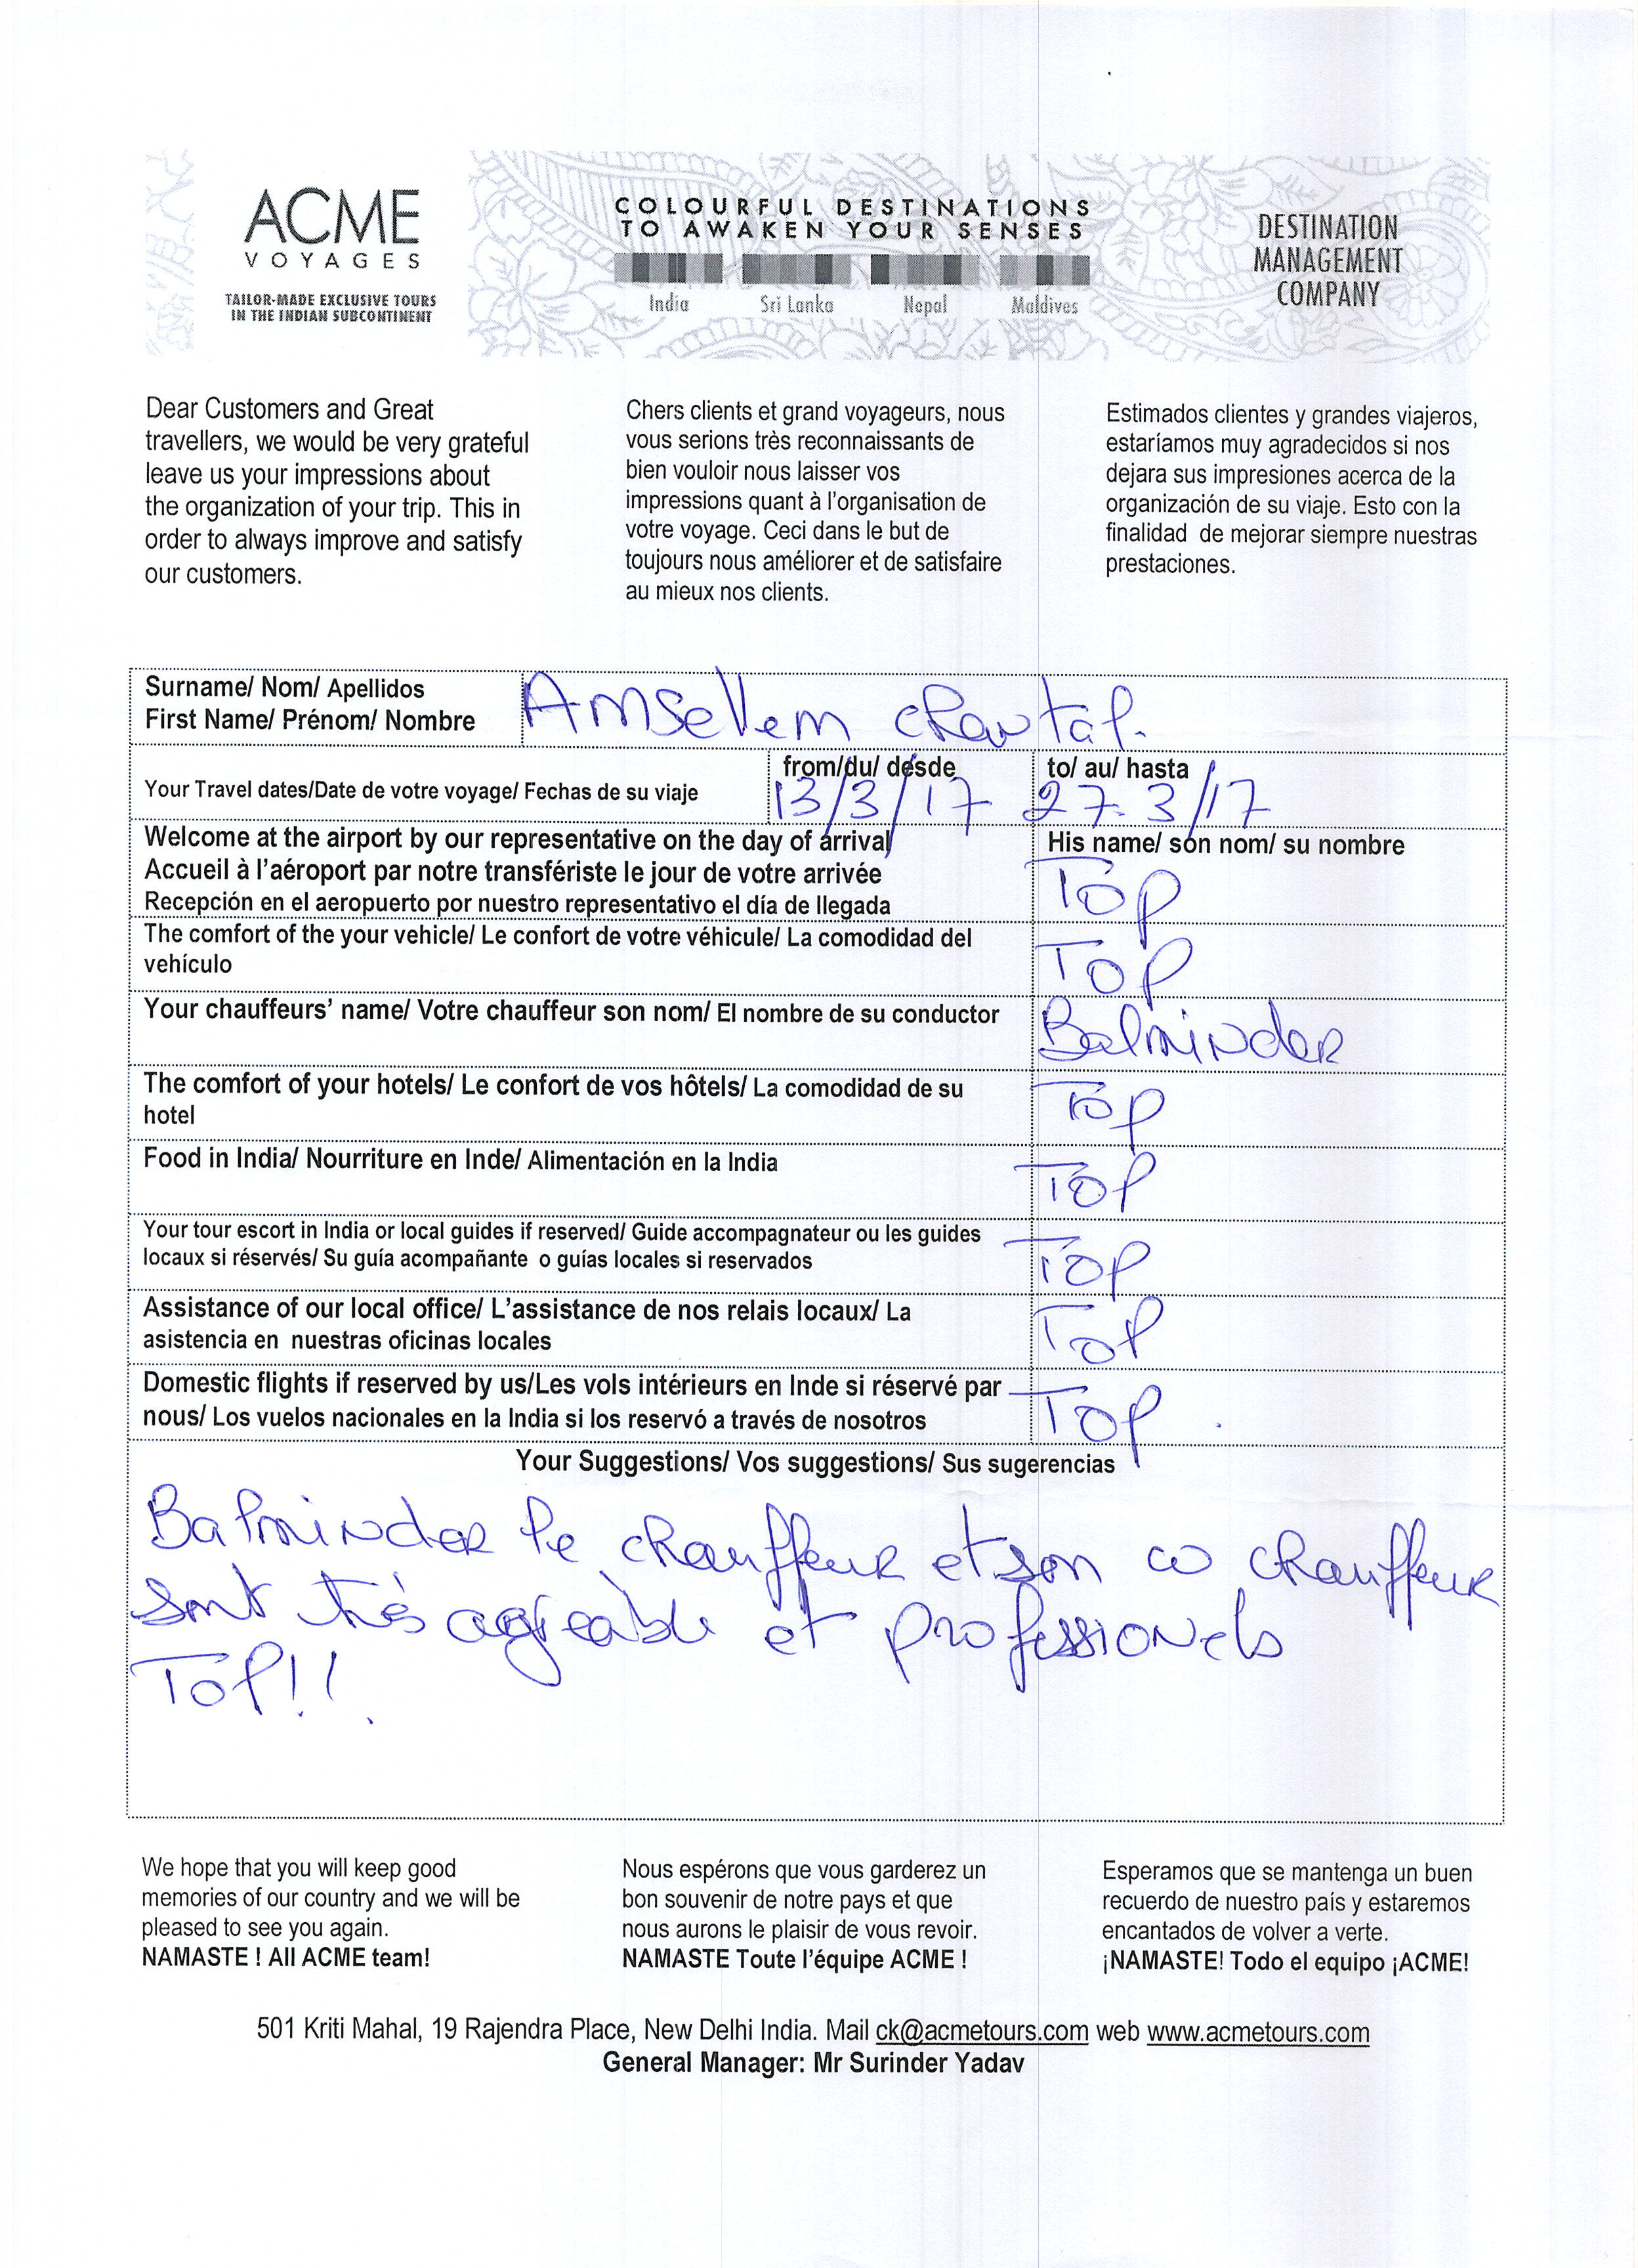 ACME
VOYAGES
TAILOR-MADE EXCLUSIVE TOURS
IN THE INDIAN SUBCONTINENT
COLOURFUL DESTINATIONS
TO AWAKEN YOUR SENSES
India Sri Lanka Nepal Maldives
DESTINATION
MANAGEMENT
COMPANY
Dear Customers and Great
travellers, we would be very grateful
leave us your impressions about
the organization of your trip. This in
order to always improve and satisfy
our customers.
Chers clients et grand voyageurs, nous
vous serions très reconnaissants de
bien vouloir nous laisser vos
impressions quant à l'organisation de
votre voyage. Ceci dans le but de
toujours nous améliorer et de satisfaire
au mieux nos clients.
Estimados clientes y grandes viajeros,
estaríamos muy agradecidos si nos
dejara sus impresiones acerca de la
organización de su viaje. Esto con la
finalidad de mejorar siempre nuestras
prestaciones.
Surname/ Nom/ Apellidos
First Name/ Prénom/ Nombre
Amsellem chantal.
Your Travel dates/Date de votre voyage/ Fechas de su viaje
from/du/ desde
13/3/17
to/ au/ hasta
27.3/17
Welcome at the airport by our representative on the day of arrival
Accueil à l'aéroport par notre transfériste le jour de votre arrivée
Recepción en el aeropuerto por nuestro representativo el día de llegada
His name/ son nom/ su nombre
Top
The comfort of the your vehicle/ Le confort de votre véhicule/ La comodidad del
vehículo
Top
Your chauffeurs' name/ Votre chauffeur son nom/ El nombre de su conductor
Balminder
The comfort of your hotels/ Le confort de vos hôtels/ La comodidad de su
hotel
Top
Food in India/ Nourriture en Inde/ Alimentación en la India
Top
Your tour escort in India or local guides if reserved/ Guide accompagnateur ou les guides
locaux si réservés/ Su guía acompañante o guías locales si reservados
Top
Assistance of our local office/ L'assistance de nos relais locaux/ La
asistencia en nuestras oficinas locales
Top
Domestic flights if reserved by us/Les vols intérieurs en Inde si réservé par
nous/ Los vuelos nacionales en la India si los reservó a través de nosotros
Top
Your Suggestions/ Vos suggestions/ Sus sugerencias
Balminder le chauffeur et son co chauffeur
sont très agréable et professionels
Top!!
We hope that you will keep good
memories of our country and we will be
pleased to see you again.
NAMASTE ! All ACME team!
Nous espérons que vous garderez un
bon souvenir de notre pays et que
nous aurons le plaisir de vous revoir.
NAMASTE Toute l'équipe ACME !
Esperamos que se mantenga un buen
recuerdo de nuestro país y estaremos
encantados de volver a verte.
¡NAMASTE! Todo el equipo ¡ACME!
501 Kriti Mahal, 19 Rajendra Place, New Delhi India. Mail ck@acmetours.com web www.acmetours.com
General Manager: Mr Surinder Yadav